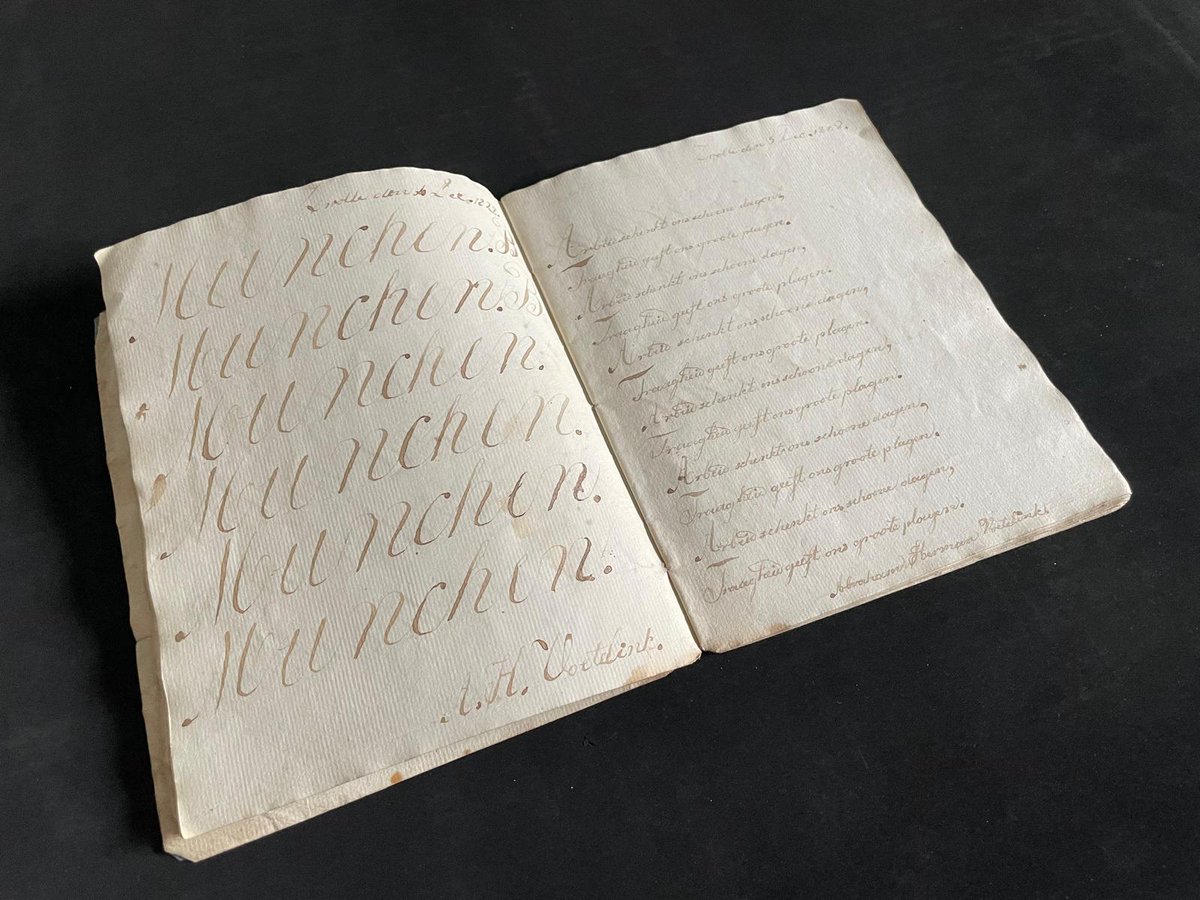 Zwolle den Dec.
Munchen. B
Munchen. B
Munchen.
Munchen.
Munchen.
Munchen.
A. H. Voetelink.
Zwolle den 5 Dec.
Arbeid schenkt ons schoone dagen,
Traagheid geeft ons groote plagen.
Arbeid schenkt ons schoone dagen,
Traagheid geeft ons groote plagen.
Arbeid schenkt ons schoone dagen,
Traagheid geeft ons groote plagen.
Arbeid schenkt ons schoone dagen,
Traagheid geeft ons groote plagen.
Arbeid schenkt ons schoone dagen,
Traagheid geeft ons groote plagen.
Arbeid schenkt ons schoone dagen,
Traagheid geeft ons groote plagen.
Abraham Herman Voetelink.